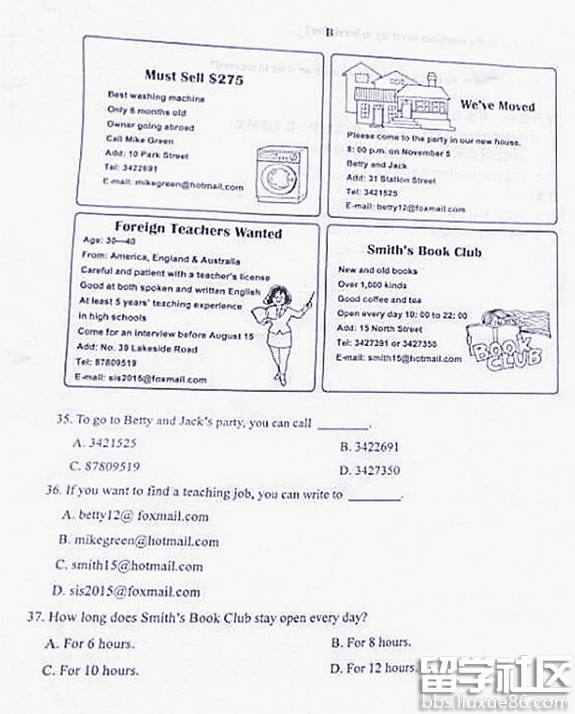 B
Must Sell $275
Best washing machine
Only 6 months old
Owner going abroad
Call Mike Green
Add: 10 Park Street
Tel: 3422691
E-mail: mikegreen@hotmail.com
We've Moved
Please come to the party in our new house.
8: 00 p.m. on November 5
Betty and Jack
Add: 31 Station Street
Tel: 3421525
E-mail: betty12@foxmail.com
Foreign Teachers Wanted
Age: 30—40
From: America, England & Australia
Careful and patient with a teacher's license
Good at both spoken and written English
At least 5 years' teaching experience
in high schools
Come for an interview before August 15
Add: No. 39 Lakeside Road
Tel: 87809519
E-mail: sis2015@foxmail.com
Smith's Book Club
New and old books
Over 1,000 kinds
Good coffee and tea
Open every day 10: 00 to 22: 00
Add: 15 North Street
Tel: 3427391 or 3427350
E-mail: smith15@hotmail.com
BOOK
CLUB
35. To go to Betty and Jack's party, you can call ________.
A. 3421525
B. 3422691
C. 87809519
D. 3427350
36. If you want to find a teaching job, you can write to ________.
A. betty12@ foxmail.com
B. mikegreen@hotmail.com
C. smith15@hotmail.com
D. sis2015@foxmail.com
37. How long does Smith's Book Club stay open every day?
A. For 6 hours.
B. For 8 hours.
C. For 10 hours.
D. For 12 hours.
留学社区
bbs.liuxue86.com